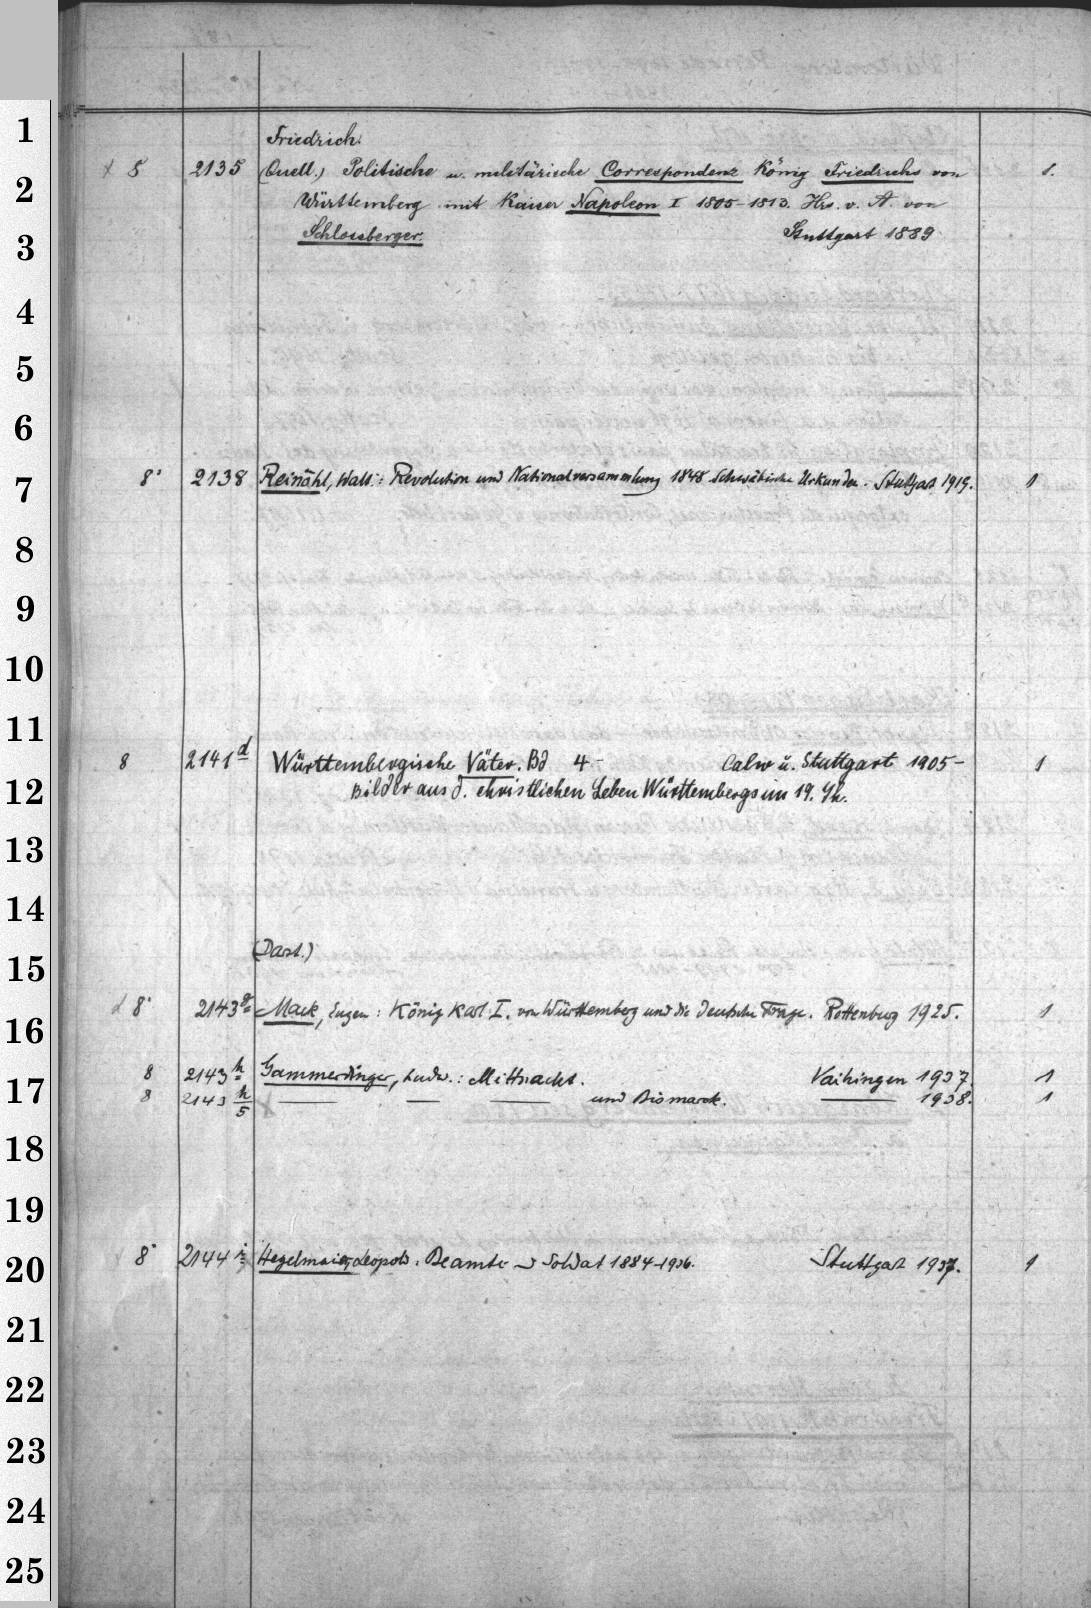 1
Friedrich.
x 8 2135 (Quell.) Politische u. militärische Correspondenz König Friedrichs von 1.
2
Württemberg mit Kaiser Napoleon I 1805-1813. Hrs. v. A. von
3
Schlossberger. Stuttgart 1889
4
5
6
7
8° 2138 Reinöhl, Walt.: Revolution und Nationalversammlung 1848 Schwäbische Urkunden. Stuttgart 1919. 1
8
9
10
11
8 2141 d Württembergische Väter. Bd 4- Calw u. Stuttgart 1905- 1
12
Bilder aus d. christlichen Leben Württembergs im 19. Jh.
13
14
(Darst.)
15
8° 2143 g Mack, Eugen: König Karl I. von Württemberg und die deutsche Frage. Rottenburg 1925. 1
16
8 2143 h Gammerdinger, Ludw.: Mittnacht. Vaihingen 1937. 1
17
8 2143 h/5 — — — und Bismarck. — 1938. 1
18
19
8° 2144 i Hegelmaier, Leopold: Beamter u Soldat 1884-1936. Stuttgart 1937. 1
20
21
22
23
24
25